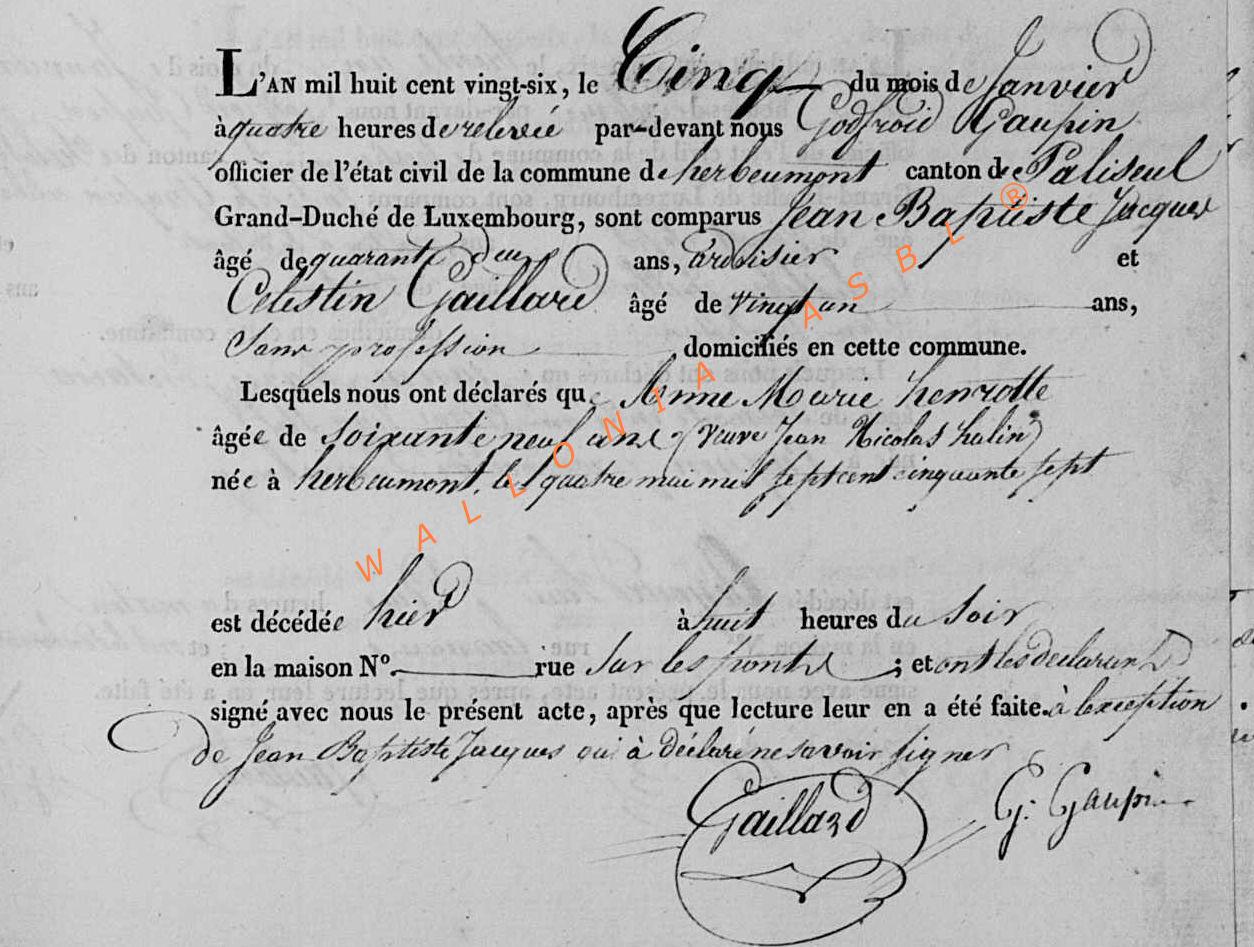 L'AN mil huit cent vingt-six, le Cinq du mois de Janvier
à quatre heures de relevée par-devant nous Godfroid Gaupin
officier de l'état civil de la commune de herbeumont canton de Paliseul
Grand-Duché de Luxembourg, sont comparus Jean Baptiste Jacques
âgé de quarante deux ans, ardoisier et
Celestin Gaillard âgé de vingt un ans,
Sans profession domiciliés en cette commune.
Lesquels nous ont déclarés que Anne Marie henrotte
âgée de soixante neuf ans (veuve Jean Nicolas halin)
née à herbeumont, le quatre mai mil sept cent cinquante sept
est décédée hier à huit heures du soir
en la maison N°. rue sur les ponts ; et ont les declarants
signé avec nous le présent acte, après que lecture leur en a été faite. à lexception
de Jean Baptiste Jacques qui à déclaré ne savoir signer
Gaillard G. Gaupin
WALLONIA ASBL ®